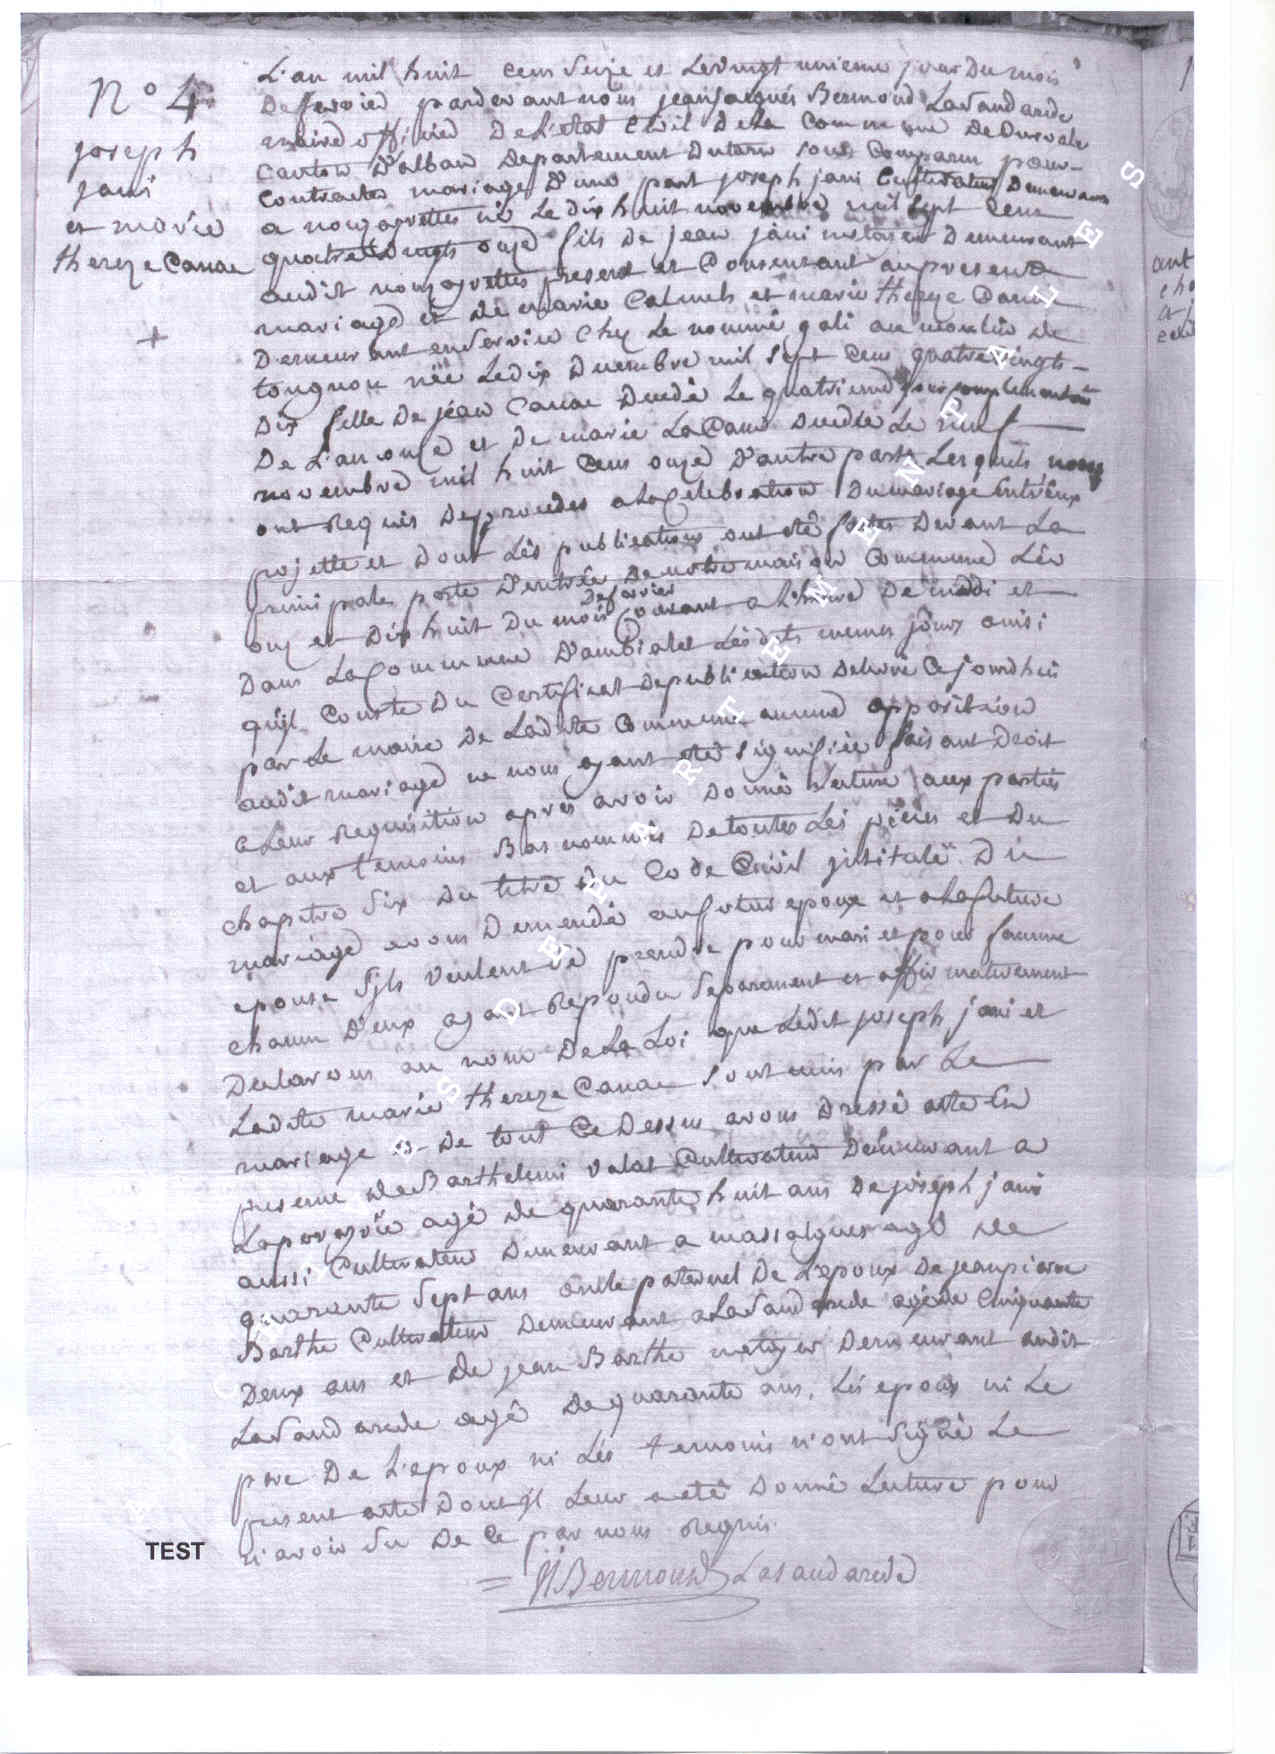 N° 4
joseph
jani
et marie
thereze Canac
L'an mil huit cens seize et le vingt unieme jour du mois
de fevrier pardevant nous jean jacques Bermond Lasaudarede
maire officier de L'etat Civil de la Commune de
Canton d'alban Departement du tarn sont Comparu pour
Contracter mariage d'une part joseph jani Cultivateur Demeurant
a nougayrettes né le dix huit novembre mil sept Cens
quatre vingts onze fils de jean jani metayer Demeurant
audit nougayrettes present et Consentant au present
mariage et de marie Calmels et marie thereze Canac
Demeurant en service Chez le nommé gali au moulin de
née le dix Decembre mil sept Cens quatre vingts
Dix fille de jean Canac Decedé le quatrieme jour complementaire
De L'an onze et de marie Decedée le neuf
novembre mil huit Cens onze d'autre part Lesquels nous
ont Requis de proceder a la Celebration du mariage Entr'eux
projetté et dont Les publications ont eté faites Devant La
principale porte d'entrée de notre maison Commune Les
onze et dix huit du mois Courant a L'heure De midi et
De fevrier
Dans La Commune D'ambialet Lesdits memes jours ainsi
qu'jl Conste du Certificat de publication Delivré Ce jourdhui
par Le maire De Ladite Commune aucune opposition
audit mariage ne nous ayant eté signifiée faisant Droit
a Leur Requisition apres avoir Donné Lecture aux parties
et aux temoins Bas nommés De toutes Les pieces et Du
chapitre six Du titre du Code Civil jntitulé Du
mariage avons Demendé au futur epoux et a La future
epouse s'jls veulent se prendre pour mari et pour famme
chacun D'eux ayant Repondu separement et affirmativement
Declarons au nom De La Loi que Ledit joseph jani et
Ladite marie thereze Canac sont unis par Le
mariage De tout Ce Dessus avons Dressé acte En
presence de Barthelemi Valat Cultivateur Demeurant a
agé de quarante huit ans De joseph jani
aussi Cultivateur Demeurant a massalgues agé de
quarante sept ans oncle paternel De L'epoux De jean pierre
Barthe Cultivateur Demeurant a Lasaudarede agé de Cinquante
Deux ans et de jean Barthe metayer Demeurant audit
Lasaudarede agé De quarante ans, Les epoux ni Le
pere De L'epoux ni Les temoins n'ont signé Le
present acte Dont jl Leur a eté Donné Lecture pour
n'avoir su De Ce par nous Requis.
JJ Bermond Lasaudarede
ARCHIVES DEPARTEMENTALES
TEST